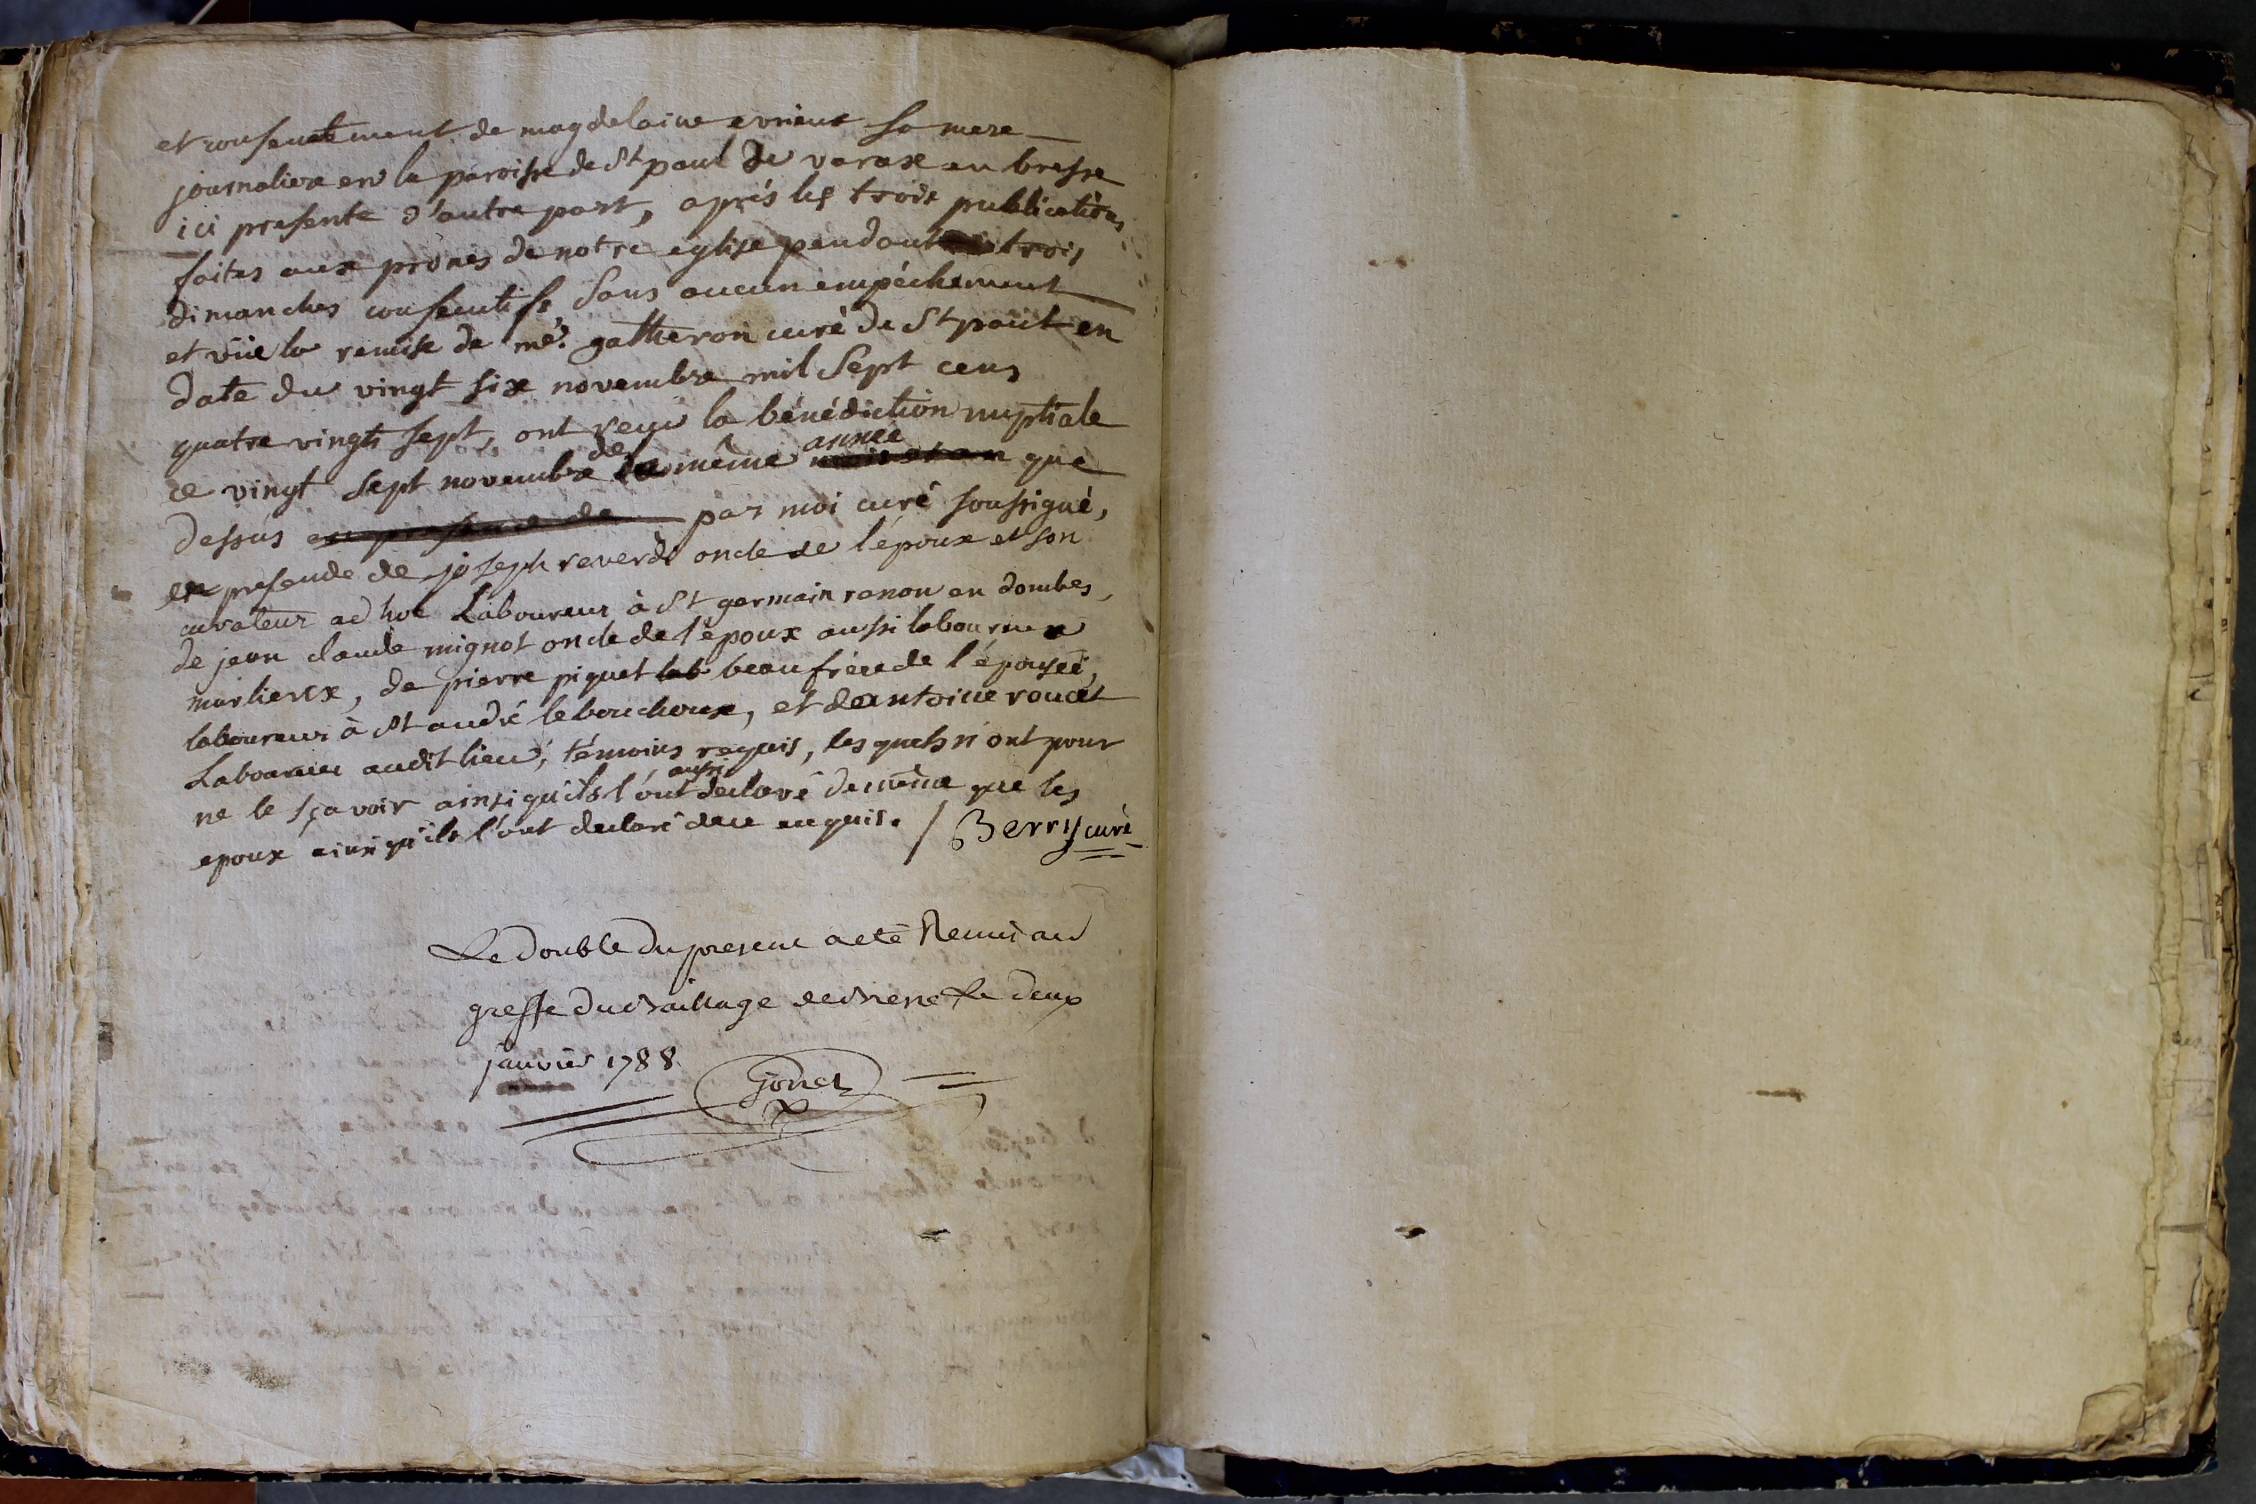 et consentement de magdelaine evrieux sa mere
journaliere en la paroisse de St paul de varax en bresse
ici presente d'autre part, après les trois publications
faites aux prônes de notre eglise pendant trois
dimanches consecutifs sans aucun empéchement
et vüe la remise de mre. gatheron curé de St paul en
date du vingt six novembre mil sept cens
quatre vingts sept, ont reçu la bénédiction nuptiale
ce vingt sept novembre de la même année que
dessus en presence de par moi curé soussigné,
en presence de joseph reverdi oncle de l'époux et son
curateur ad hoc Laboureur à St germain renon en dombes,
de jean claude mignot oncle de l'époux aussi laboureur
marlieux, de pierre piquet lab beaufrère de l'épousée,
laboureur à St andré le bouchoux, et de antoine
Laboureur audit lieu, témoins requis, lesquels n'ont pour
ne le sçavoir ainsi qu'ils l'ont aussi declaré de même que les
epoux ainsi qu'ils l'ont declaré de ce enquis. / Berry curé
Le double du present acté Remis au
greffe du Bailliage de Bresse le deux
janvier 1788